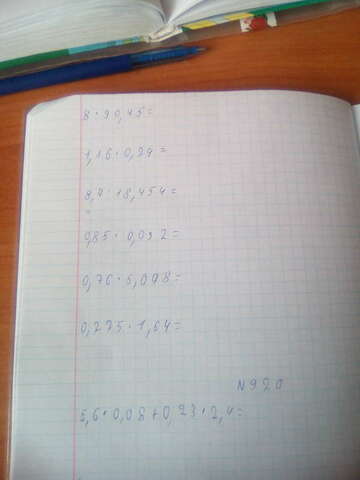 8 · 90,45=
1,16 · 0,29=
8,4 · 18,454=
0,85 · 0,092=
0,76 · 5,098=
0,275 · 1,64=
№920
5,6 · 0,08 + 0,23 · 2,4=